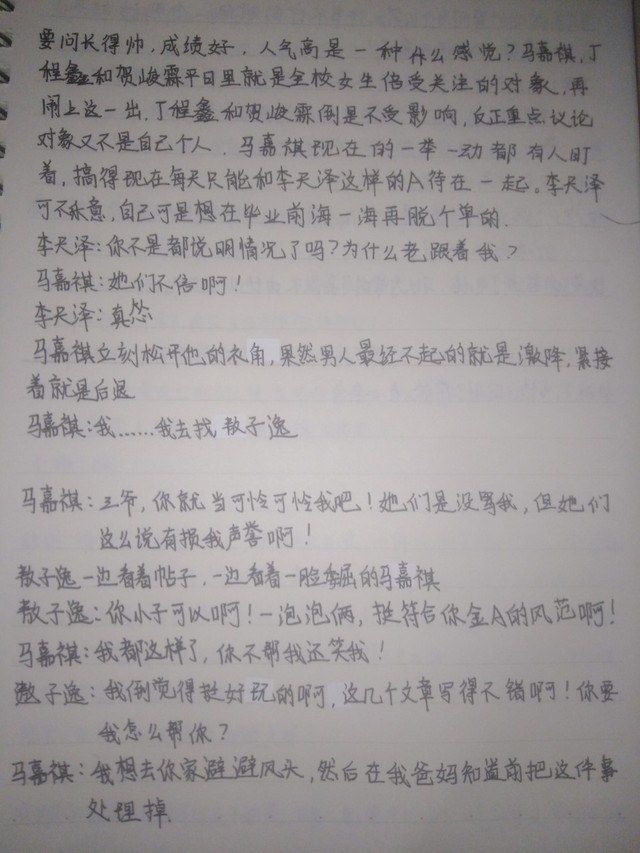 要问长得帅,成绩好,人气高是一种什么感觉?马嘉祺,丁
程鑫和贺峻霖平日里就是全校女生倍受关注的对象,再
闹上这一出,丁程鑫和贺峻霖倒是不受影响,反正重点议论
对象又不是自己个人.马嘉祺现在的一举一动都有人盯
着,搞得现在每天只能和李天泽这样的A待在一起。李天泽
可不乐意,自己可是想在毕业前海一海再脱个单的.
李天泽:你不是都说明情况了吗?为什么老跟着我?
马嘉祺:她们不信啊!
李天泽:真怂
马嘉祺立刻松开他的衣角,果然男人最经不起的就是激降,紧接
着就是后退
马嘉祺:我……我去找敖子逸
马嘉祺:三爷,你就当可怜可怜我吧!她们是没骂我,但她们
这么说有损我声誉啊!
敖子逸一边看着帖子,一边看着一脸委屈的马嘉祺
敖子逸:你小子可以啊!一泡泡俩,挺符合你金A的风范啊!
马嘉祺:我都这样了,你不帮我还笑我!
敖子逸:我倒觉得挺好玩的啊,这几个文章写得不错啊!你要
我怎么帮你?
马嘉祺:我想去你家避避风头,然后在我爸妈知道前把这件事
处理掉.